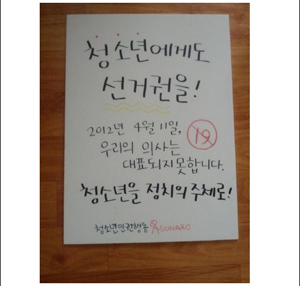 청소년에게도
선거권을!
2012년 4월 11일,
19
우리의 의사는
대표되지 못합니다.
청소년을 정치의 주체로!
청소년인권행동 ASUNARO